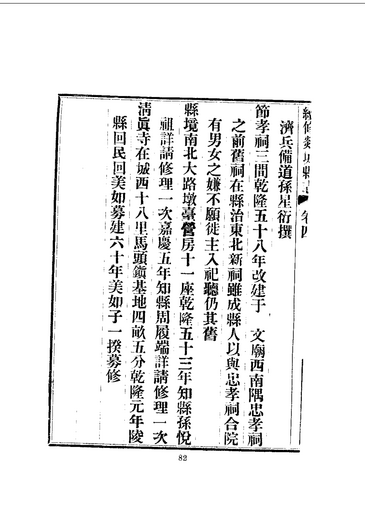 續修郯城縣志 卷四
濟兵備道孫星衍撰
節孝祠三間乾隆五十八年改建于 文廟西南隅忠孝祠
之前舊祠在縣治東北新祠雖成縣人以與忠孝祠合院
有男女之嫌不願徙主入祀聽仍其舊
縣境南北大路墩臺營房十一座乾隆五十三年知縣孫悅
祖詳請修理一次嘉慶五年知縣周履端詳請修理一次
清眞寺在城西十八里馬頭鎮基地四畝五分乾隆元年陵
縣回民回美如募建六十年美如子一揆募修
82